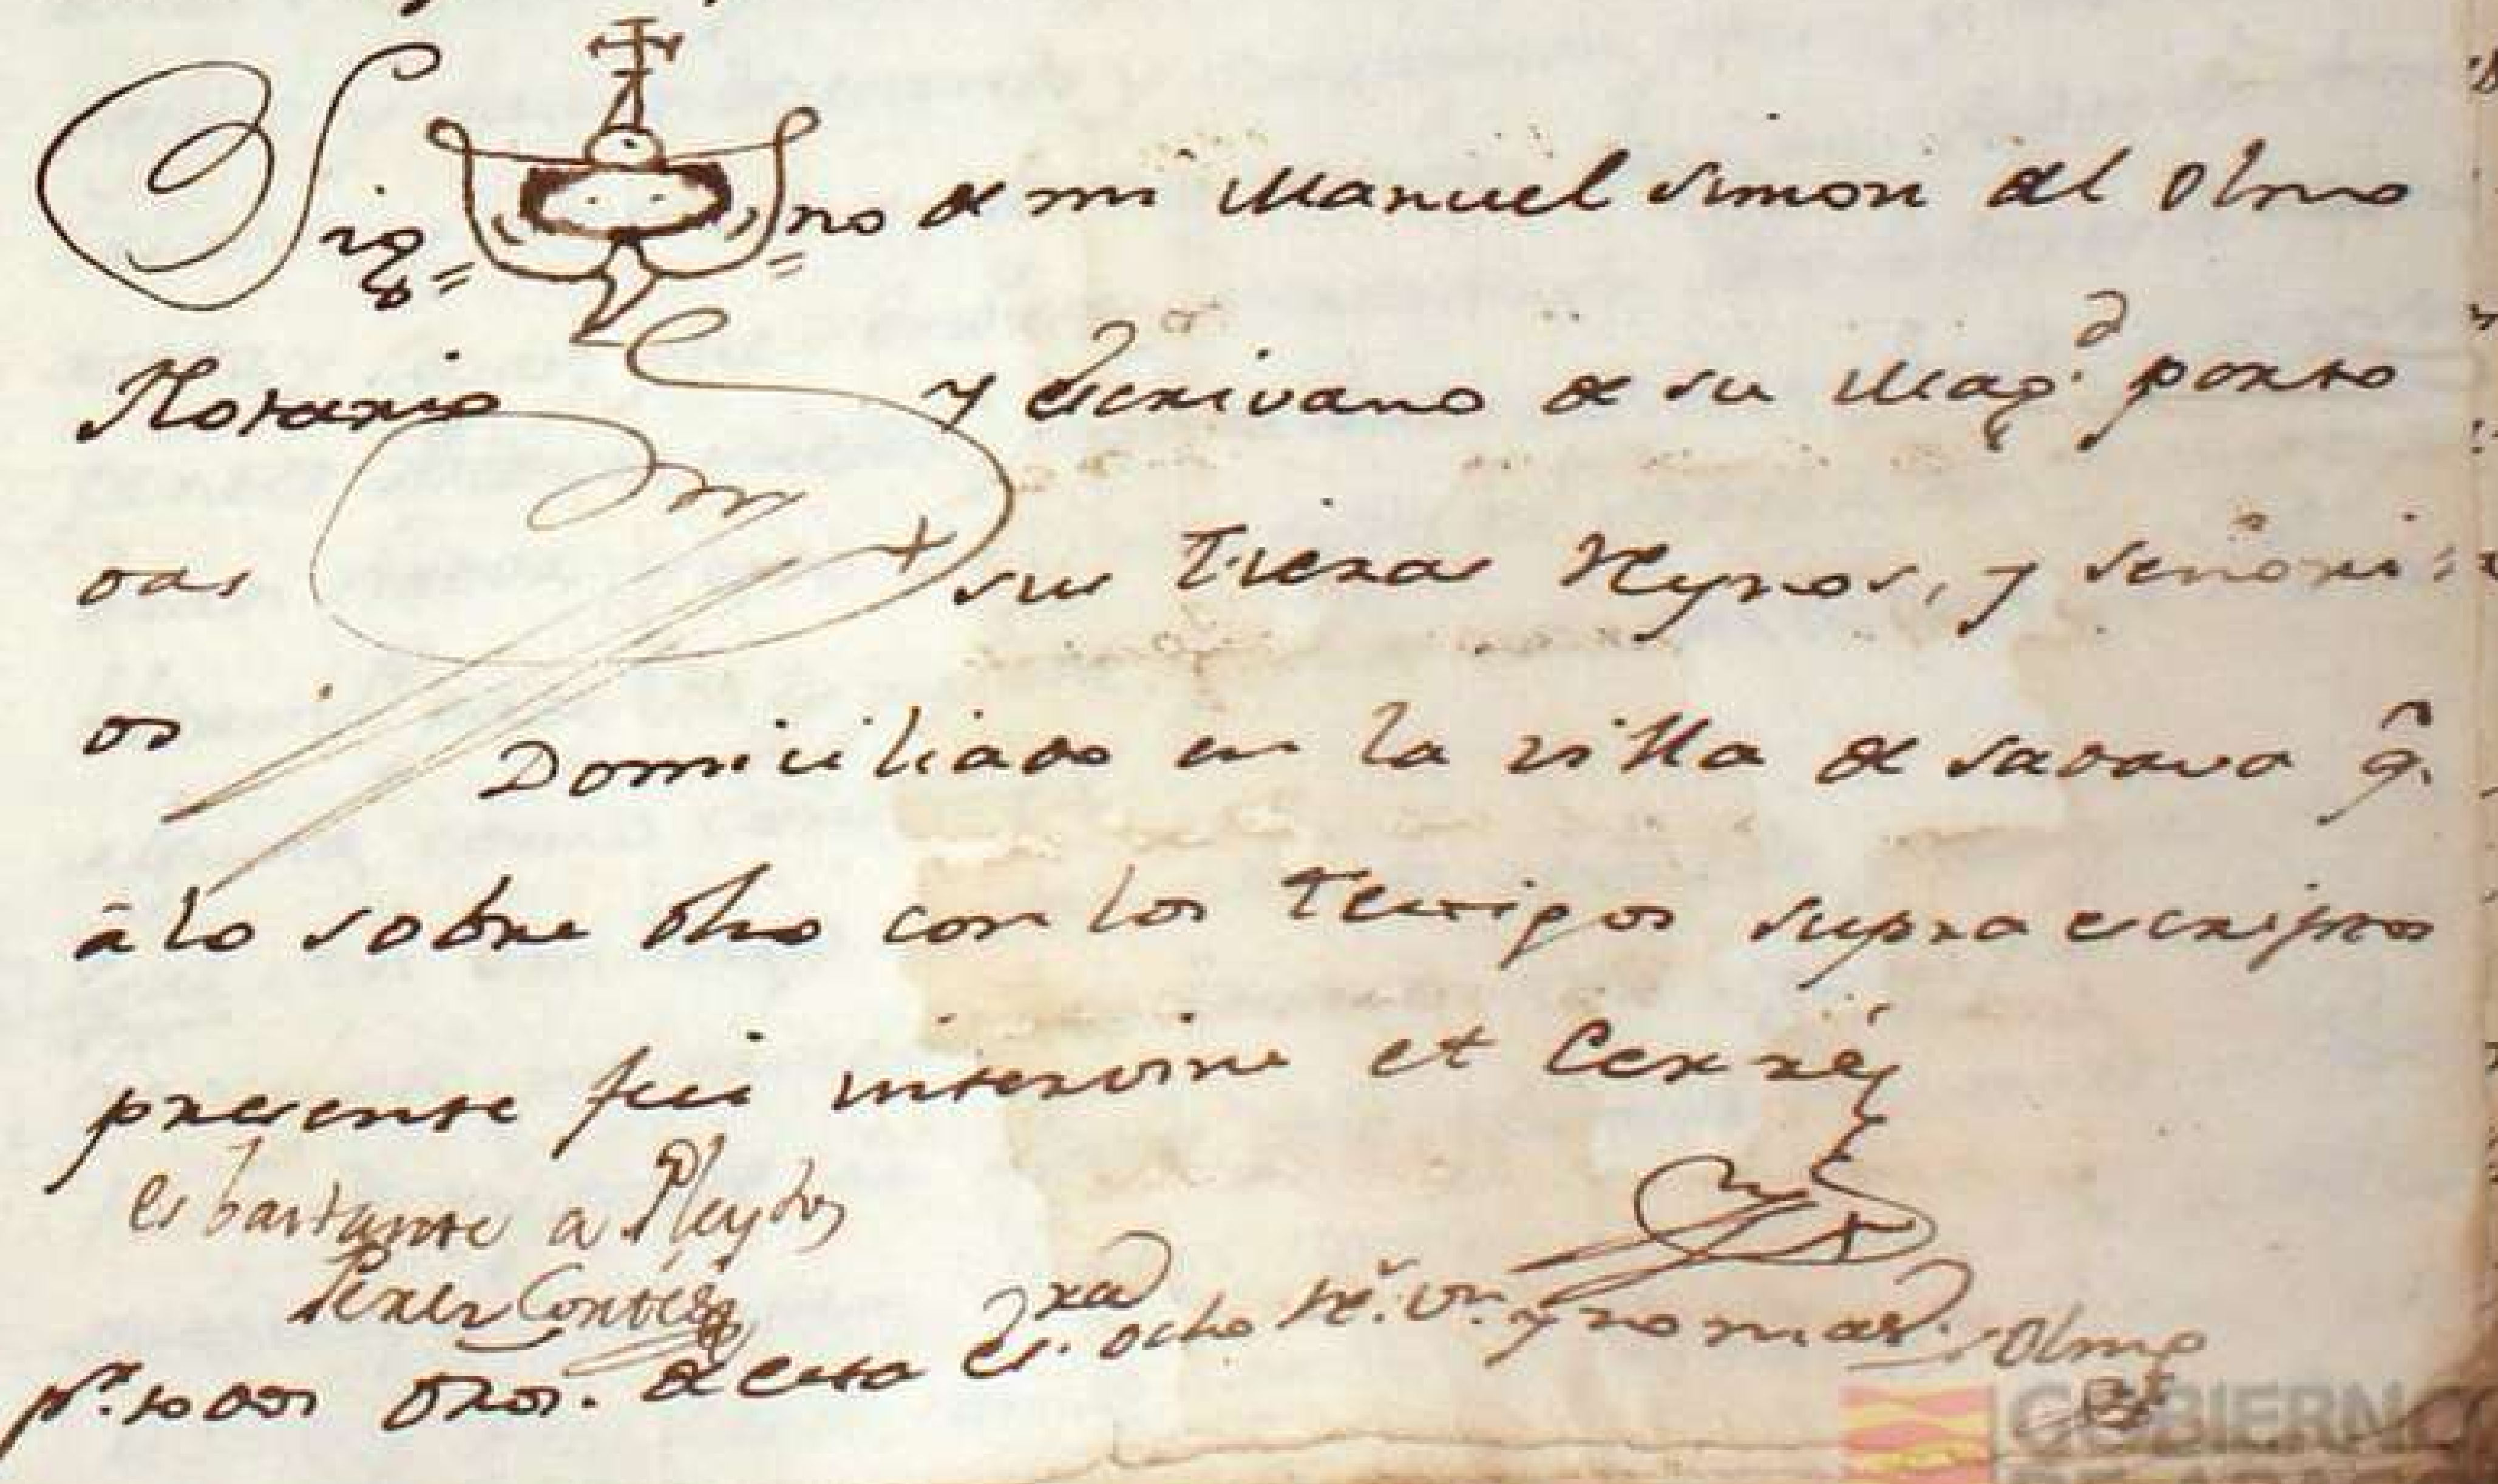 Sig no de mi Manuel Simon del Olmo
Notario y escrivano de su Magd. porto
das sus tierras Reynos, y señori
os Domiciliado en la villa de Sadava q.
â lo sobre dho con los testigos supra escriptos
presente fui intervine et Cerré
es bastante a Pleytos
Perez
pr. todos dros. de esta esra. ocho rs. vn. y no mas. Olmo
GOBIERNO